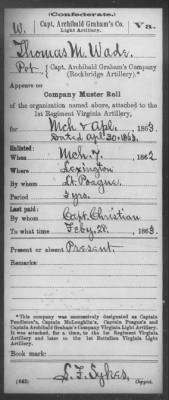 (Confederate.)
W. Capt. Archibald Graham's Co. Va.
Light Artillery.
Thomas M. Wade
Pvt., Capt. Archibald Graham's Company
(Rockbridge Artillery).*
Appears on
Company Muster Roll
of the organization named above, attached to the
1st Regiment Virginia Artillery,
for Mch & Apl., 1863.
Dated Apl 30, 1863.
Enlisted:
When Mch. 7, 1862
Where Lexington
By whom Lt. Poague
Period 3 yrs.
Last paid:
By whom Capt. Christian
To what time Feby. 28, 1863.
Present or absent Present.
Remarks:
*This company was successively designated as
Pendleton's, Captain McLaughlin's, Captain Poague's and
Captain Archibald Graham's Company Virginia Light Artillery.
It was attached, for a time, to the 1st Regiment Virginia
Artillery and later to the 1st Battalion Virginia Light
Artillery.
Book mark:
(642) S. F. Sykes,
Copyist.